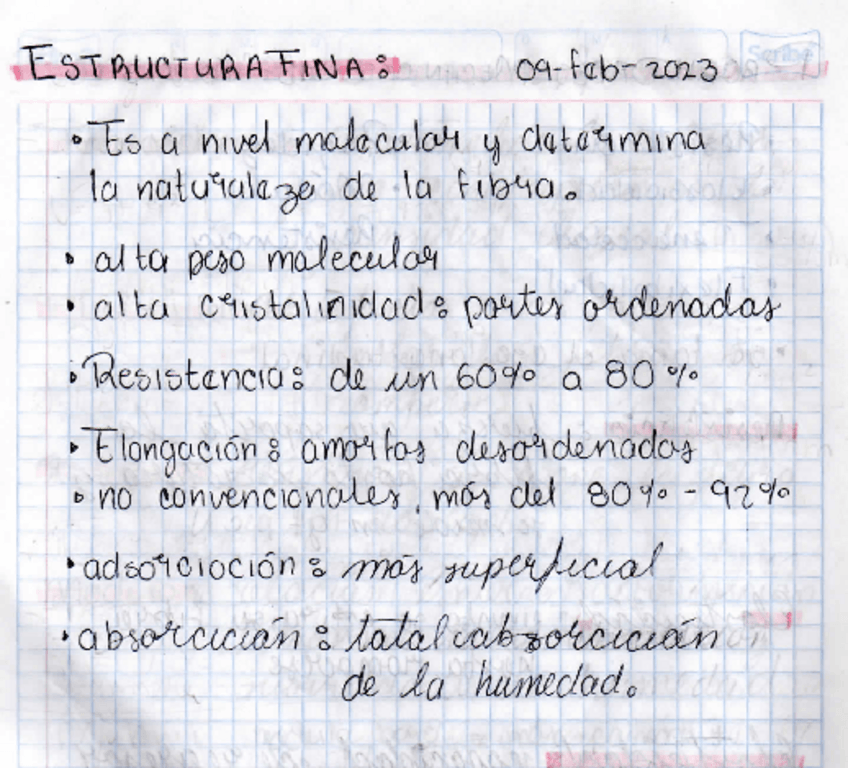 ESTRUCTURA FINA: 09-feb-2023
• Es a nivel molecular y determina
la naturaleza de la fibra.
• alta peso molecular
• alta cristalinidad: partes ordenadas
• Resistencia: de un 60% a 80%
• Elongación: amorfas desordenadas
• no convencionales, más del 80% - 92%
• adsorcioción: más superficial
• absorcición: total absorcición
de la humedad.
Scribe